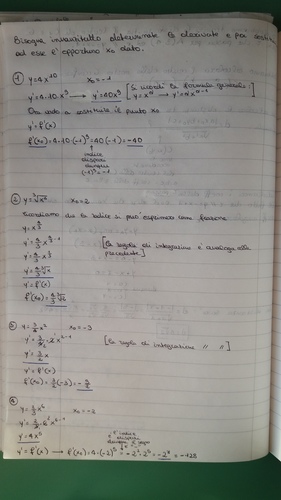 Bisogna innanzitutto determinare la derivata e poi sostituire
ad essa l' opportuno x₀ dato.
① y=4x¹⁰ x₀=-1
y'=4·10·x⁹ → y'=40x⁹ [Si ricordi la formula generale:
y=xⁿ → y'=nxⁿ⁻¹]
Ora vado a sostituire il punto x₀
y'=f'(x)
f'(x₀)=4·10·(-1)⁹=40(-1)=-40
indice
dispari
dunque
(-1)⁹=-1
② y=∛x⁴ x₀=2
Ricordiamo che la radice si può esprimere come frazione
y=x^4/3
y'=4/3 x^4/3-1
y'=4/3 x^1/3
[la regola di integrazione è analoga alla
precedente]
y'=4/3 ∛x
y'=f'(x)
f'(x₀)=4/3 ∛2
③ y=3/4 x² x₀=-3
y'=3/4·2x²⁻¹ [la regola di integrazione " "]
y'=3/2 x
y'=f'(x)
f'(x₀)=3/2(-3)=-9/2
④
y=2/3 x⁶ x₀=-2
y'=2/3·6x⁶⁻¹
y'=4x⁵
y'=f'(x) → f'(x₀)=4·(-2)⁵=-2²·2⁵=-2⁷=-128